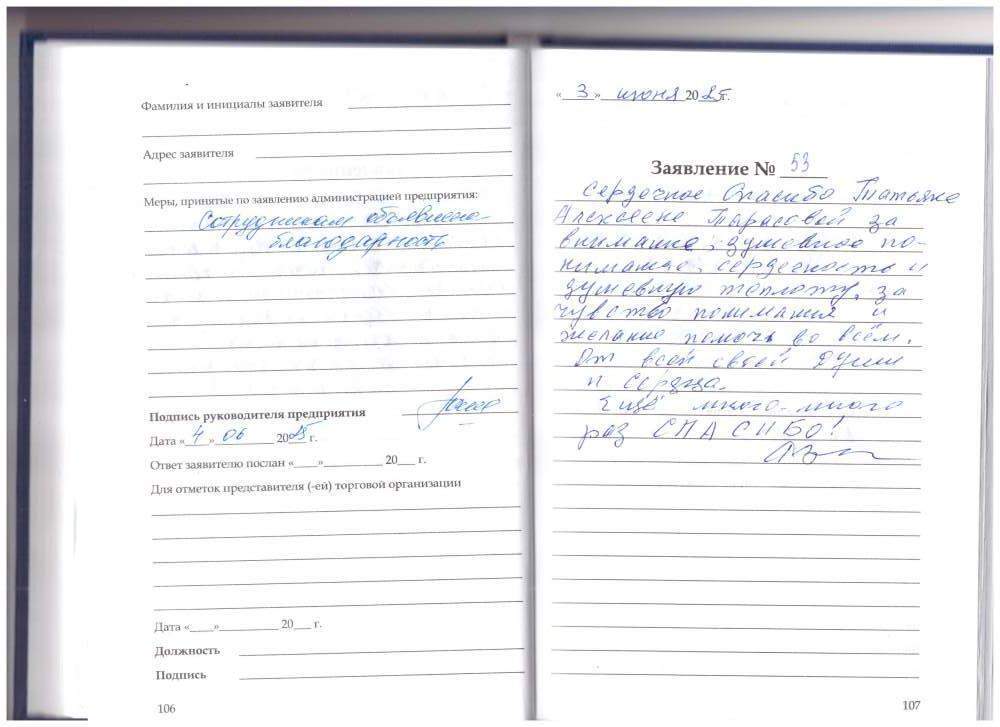 Фамилия и инициалы заявителя
Адрес заявителя
Меры, принятые по заявлению администрацией предприятия:
Сотрудникам объявлена
благодарность
Подпись руководителя предприятия
Дата «4» 06 2025 г.
Ответ заявителю послан «___»__________ 20___ г.
Для отметок представителя (-ей) торговой организации
Дата «____»__________ 20___ г.
Должность
Подпись
106
«3» июня 2025г.
Заявление № 53
Сердечное Спасибо Татьяне
Алексеевне Тарасовой за
внимание, душевное по-
нимание, сердечность и
душевную теплоту, за
чувство понимания и
желание помочь во всём.
От всей своей души
и сердца.
Ещё много-много
раз СПАСИБО!
107